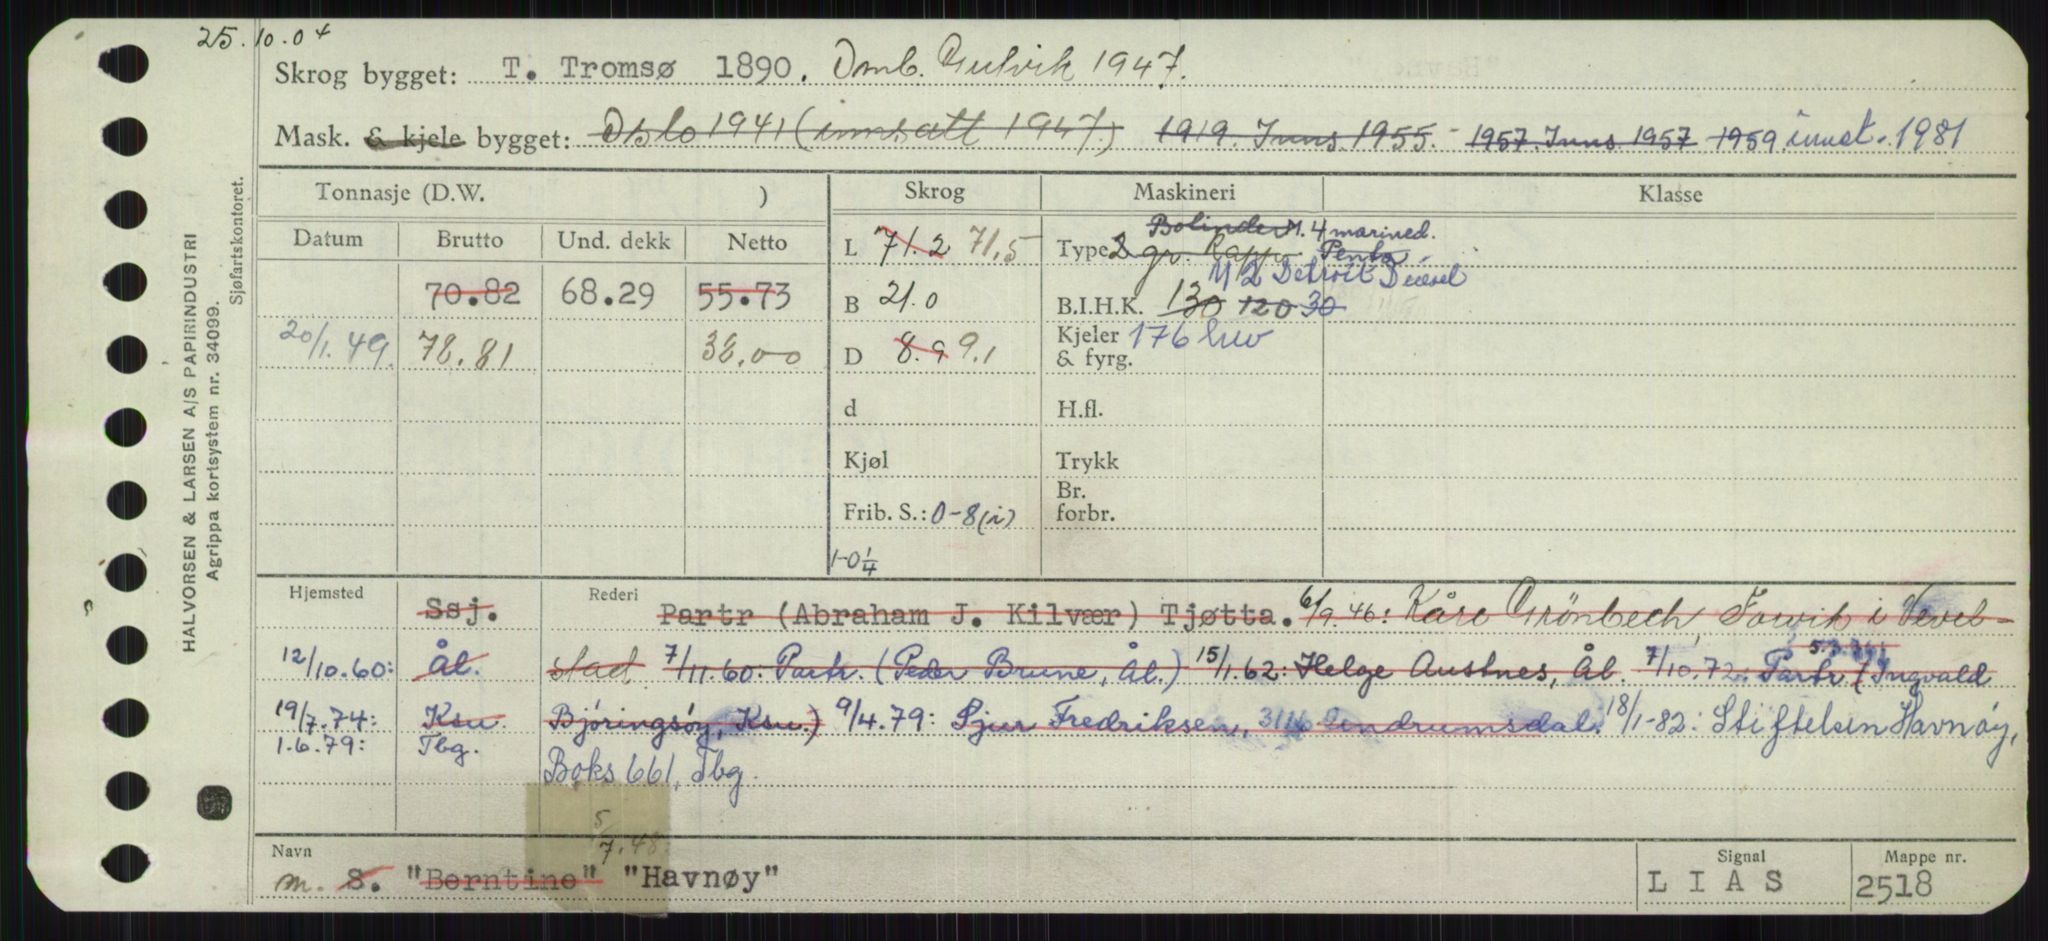 25.10.04
Skrog bygget: T. Tromsø 1890. Omb. Gulvik 1947.
Mask. & kjele bygget: Oslo 1941 (innsatt 1947.) 1919. Inns. 1955. - 1957. Inns 1957 1959 innst. 1981
Tonnasje (D.W. ) Skrog Maskineri Klasse
Datum Brutto Und. dekk Netto
L 71.2 71,5 Type 2 gr. Rapp Bolinder M. 4 marined. Penta
M 2 Detroit Diesel
70.82 68.29 55.73 B 21.0 B.I.H.K. 130 120 30
20/1.49. 78.81 38.00 D 8.9 9.1 Kjeler & fyrg. 176 hw
d H.fl.
Kjøl Trykk
Frib. S.: 0-8(i) Br. forbr.
1-0 1/4
Hjemsted Ssj. Rederi Partr (Abraham J. Kilvær) Tjøtta. 6/9.46: Kåre Grönbech Forvik i Vevel-
12/10.60: Ål. stad 7/11.60: Partr. (Peder Brune, Ål.) 15/1.62: Helge Austnes, Ål. 7/10.72: Partr (Ingvald
19/7.74: Ksu. Björingsöy, Ksu.) 9/4.79: Sjur Fredriksen, 3116 18/1-82: Stiftelsen Havnøy,
1.6.79: Tbg. Boks 661, Tbg.
5/7.48
Navn m. S. "Berntine" "Havnøy" Signal LIAS Mappe nr. 2518
HALVORSEN & LARSEN A/S PAPIRINDUSTRI
Agrippa kortsystem nr. 34099.
Sjøfartskontoret.